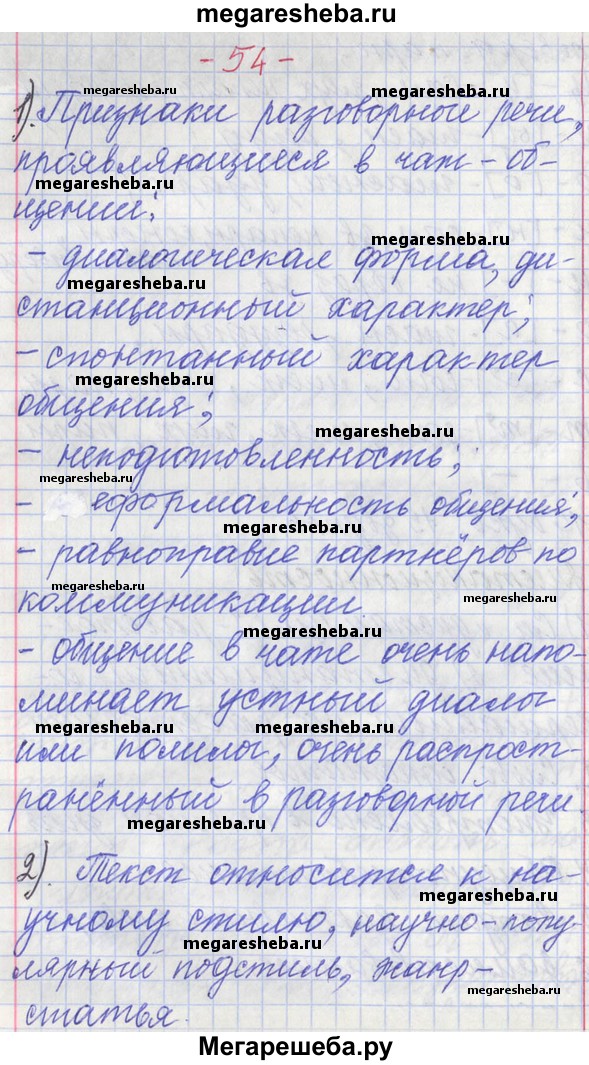 megaresheba.ru
- 54 -
megaresheba.ru
1). Признаки разговорной речи,
megaresheba.ru
проявляющиеся в чат-об-
megaresheba.ru
щении:
megaresheba.ru
- диалогическая форма, ди-
megaresheba.ru
станционный характер;
- спонтанный характер
megaresheba.ru
общения;
megaresheba.ru
- неподготовленность;
megaresheba.ru
- еформальность общения;
megaresheba.ru
- равноправие партнёров по
megaresheba.ru
коммуникации.
megaresheba.ru
megaresheba.ru
- общение в чате очень напо-
минает устный диалог
megaresheba.ru megaresheba.ru
или полилог, очень распрост-
ранённый в разговорной речи.
megaresheba.ru
2). Текст относится к на-
megaresheba.ru
учному стилю, научно-попу-
megaresheba.ru
лярный подстиль, жанр-
megaresheba.ru
статья.
Мегарешеба.ру